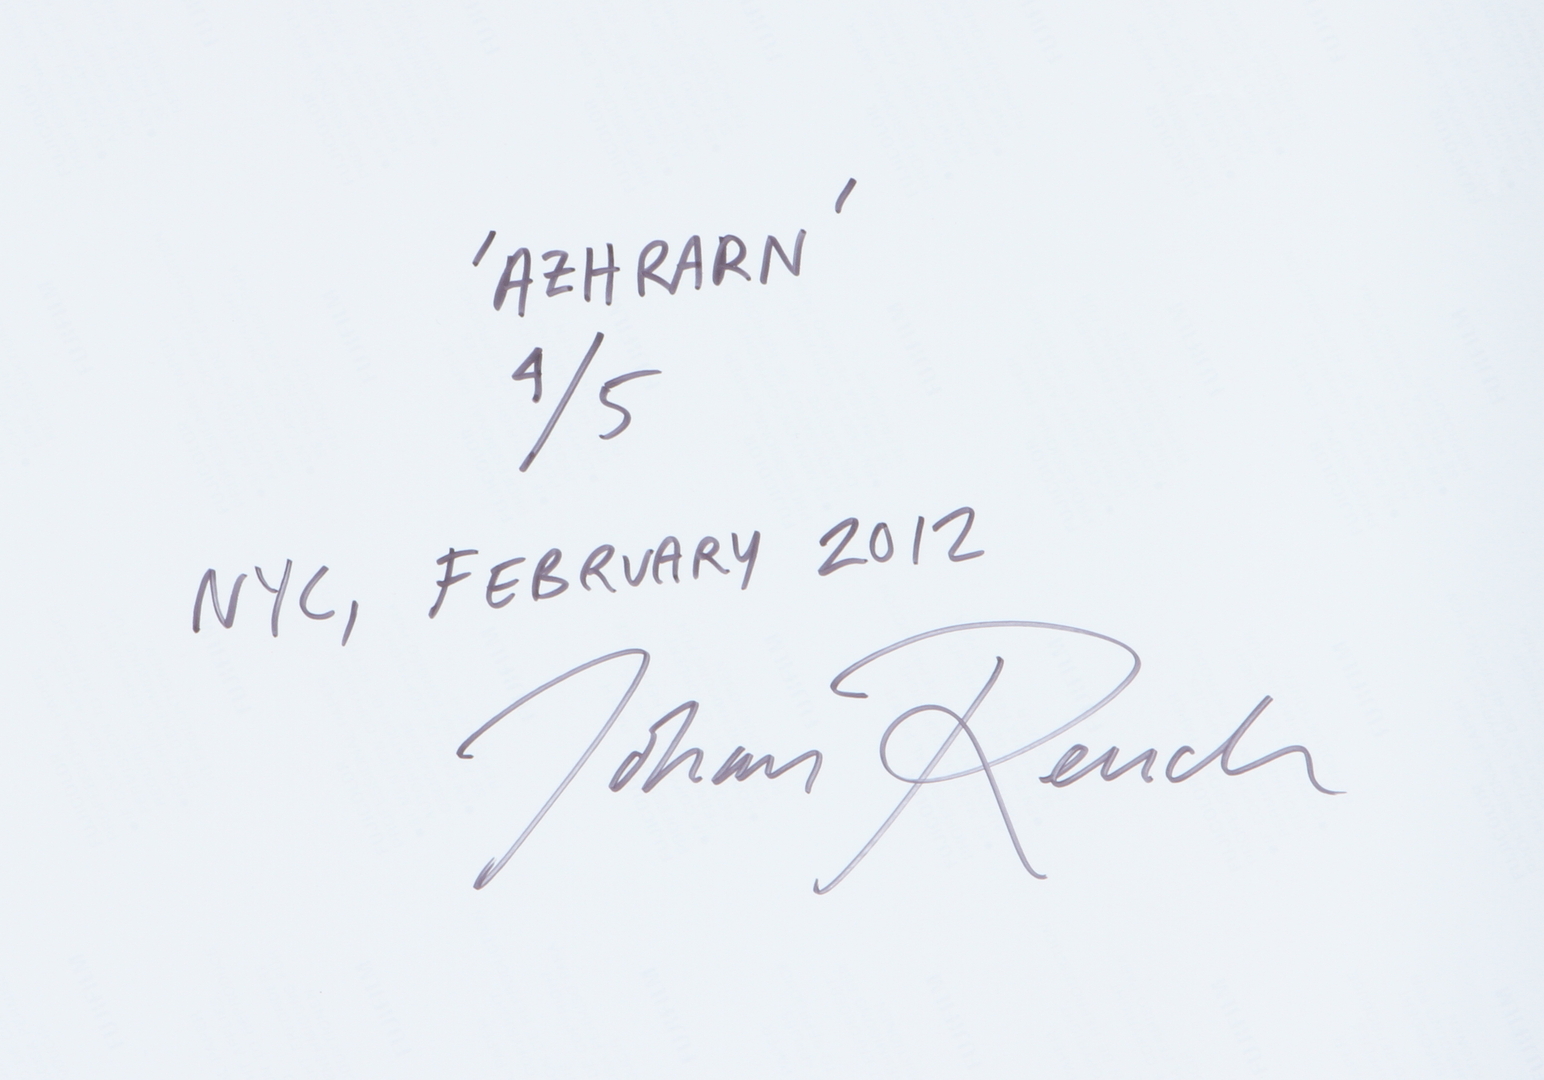 'AZHRARN'
4/5
NYC, FEBRUARY 2012
Johan Renck